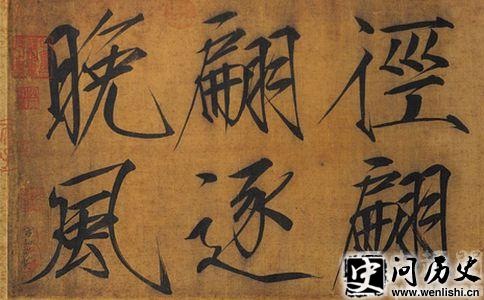 徑翩
翩逐
晚風
史问历史
www.wenlishi.cn